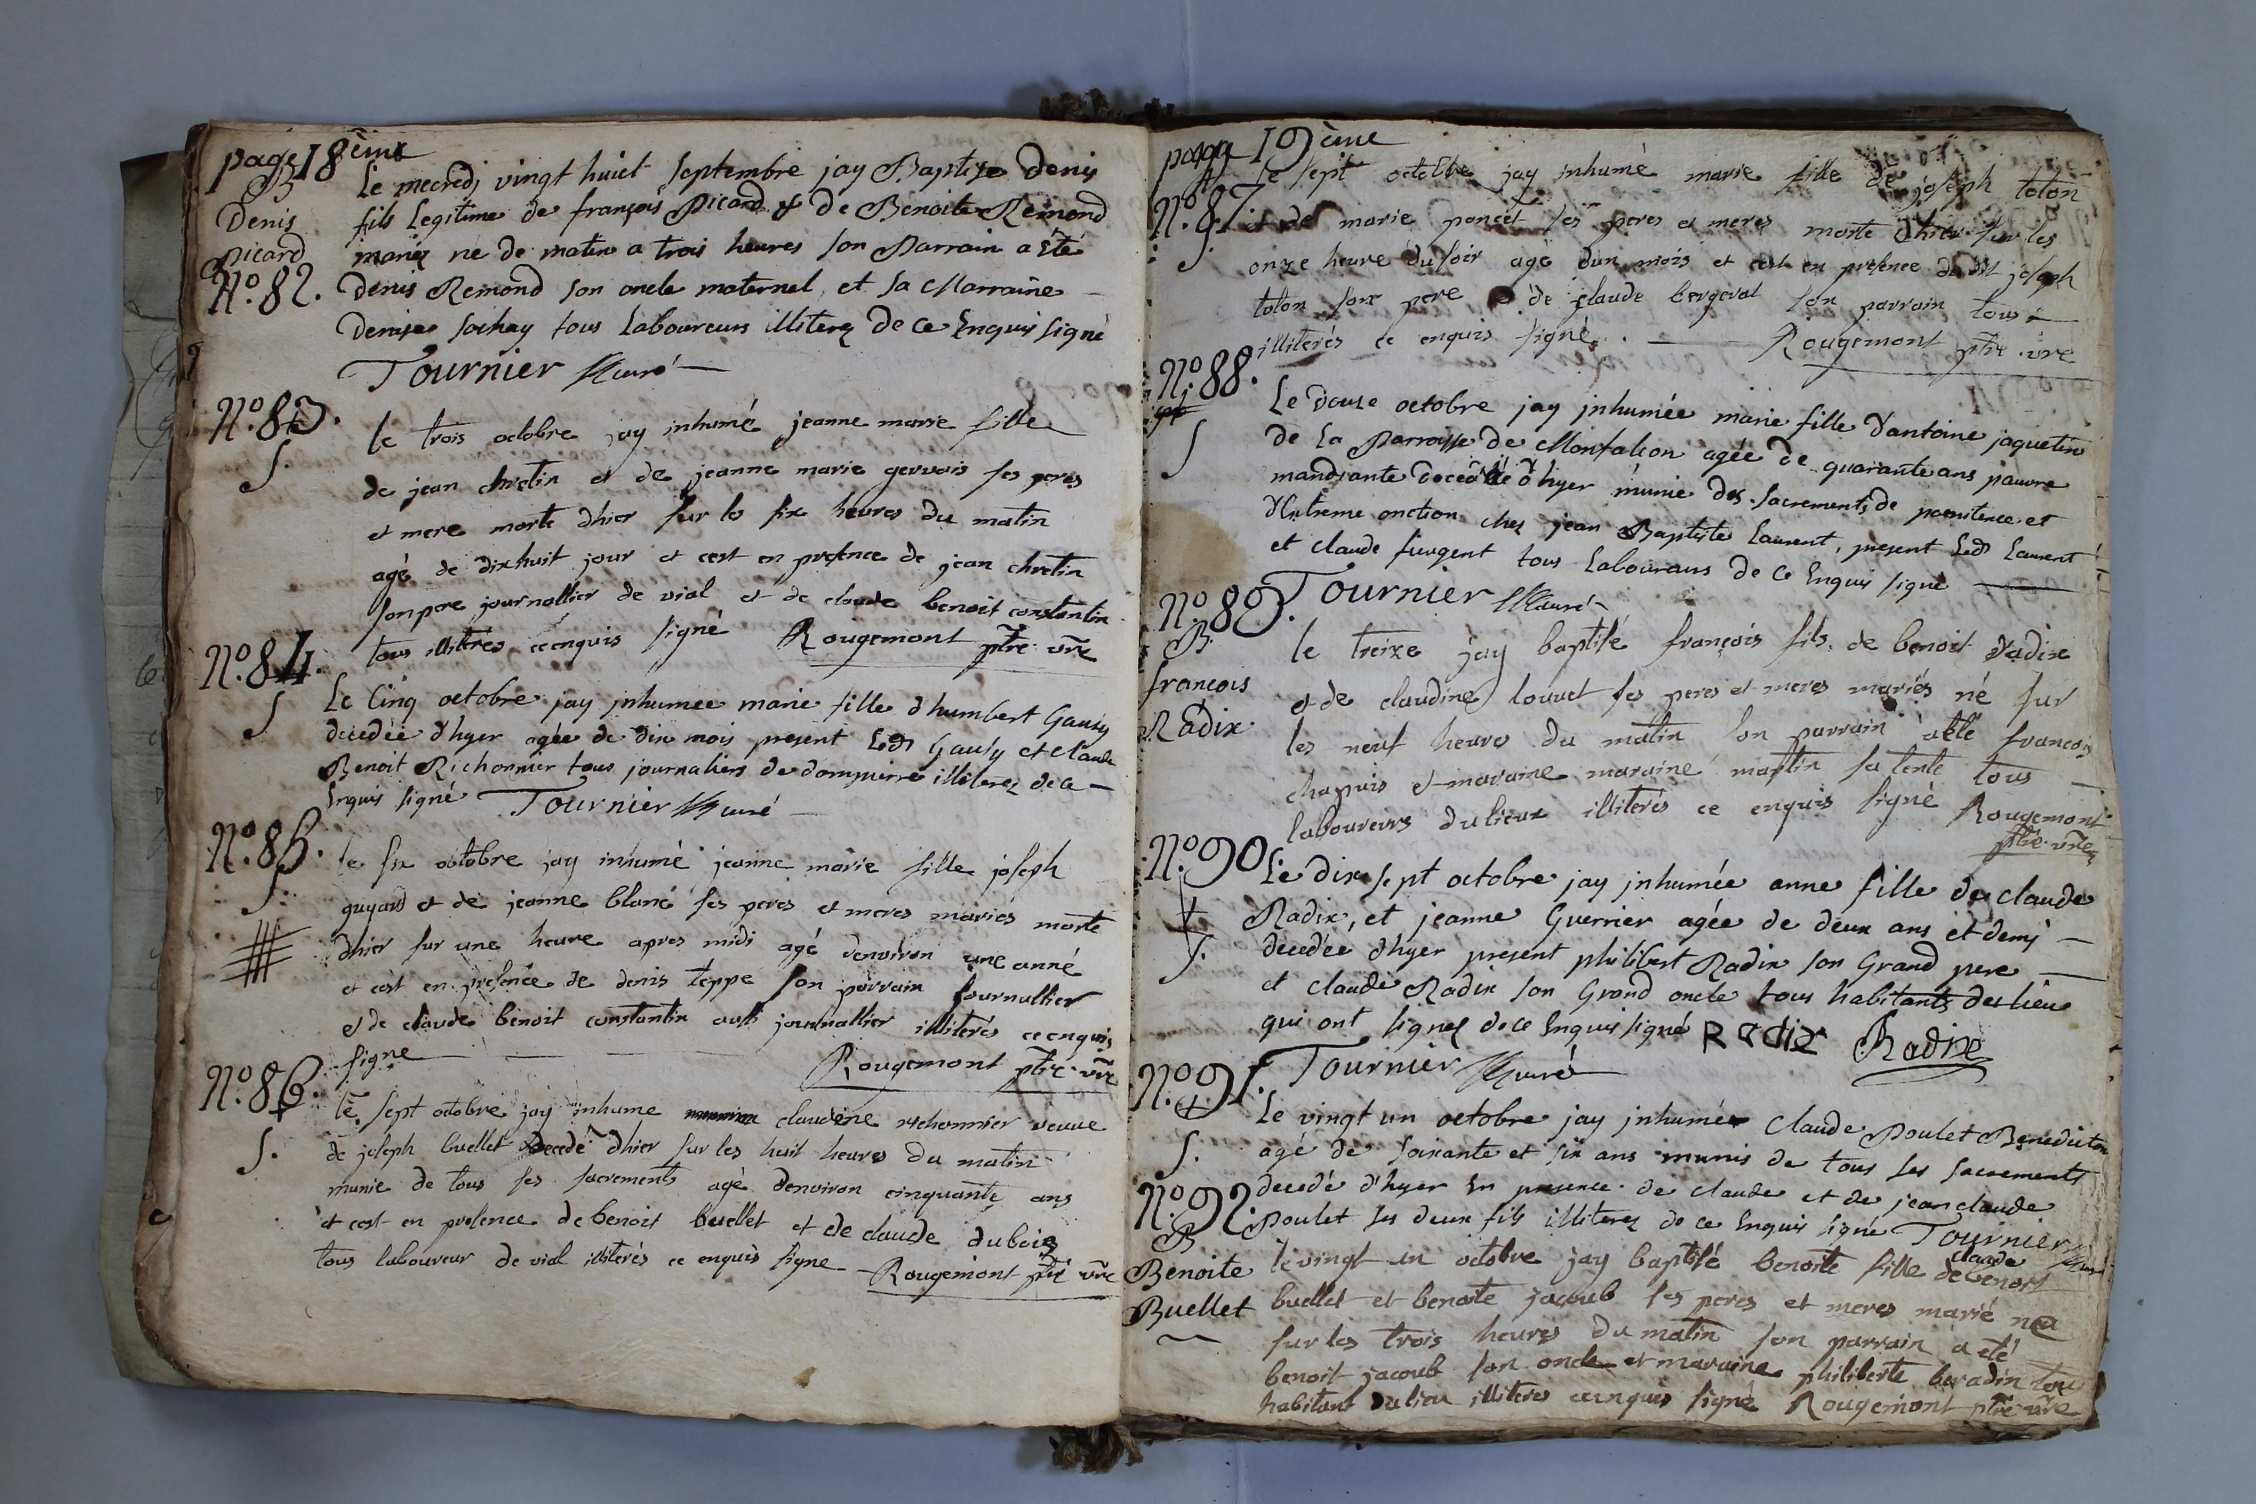 page 18ème
B
Denis
Picard
N.º 82.
Le mecredj vingt huict septembre jay Baptize denis
fils Legitime de françois Picard & de Benoite Remond
mariez ne de matin a trois heures son Parrain a Eté
denis Remond son oncle maternel et sa Marraine
denise sochay tous Laboureurs illiterez de ce Enquis signé
Tournier curé
N.º 83.
S.
le trois octobre jay inhumé jeanne marie fille
de jean chretin et de jeanne marie gervais ses peres
et mere morte dhier sur les six heures du matin
agé de dixhuit jour et cest en presence de jean chretin
son pere journallier de vial et de claude benoit constantin
tous illitrés ce enquis signé Rougemont ptre vre
N.º 84.
S
Le Cinq octobre jay jnhumee marie fille dhumbert Gausy
decedée d'hyer agée de dix mois present Led Gausy et Claude
Benoit Richonnier tous journaliers de dompierre illiterez de ce
Enquis signé Tournier curé
N.º 85.
S.
le six octobre jay inhumé jeanne marie fille joseph
guyard et de jeanne blanc ses peres et meres mariés morte
dhier sur une heure apres midi agé denviron une anné
et cest en presence de denis teppe son parrain journallier
et de claude benoit constantin aussi journallier illiterés ce enquis
signe Rougemont ptre vre
N.º 86.
S.
le sept octobre jay inhume claudine richonnier veuve
de joseph buellet decedé dhier sur les huit heures du matin
munie de tous ses sacrements agé denviron cinquante ans
et cest en presence de benoit buellet et de claude dubois
tous laboureur de vial illiterés ce enquis signe Rougemont ptre vre
page 19ème
N.º 87.
S.
le sept octobre jay inhumé marie fille de joseph tolon
et de marie poncet ses peres et meres morte dhier sur les
onze heure du soir agé dun mois et cest en presence du dit joseph
tolon son pere de claude bergeral son parrain tous
illiterés ce enquis signé. Rougemont ptre vre
N.º 88.
S
Le douse octobre jay jnhumée marie fille d'antoine jaquetin
de La Parroisse de Monfalcon agée de quarante ans pauvre
mandiante decedée d'hyer munie des sacrements de poenitence et
d'Extreme onction chez jean Baptiste Laurent, present Led Laurent
et claude furgent tous Laboureurs de Ce Enquis signé
Tournier curé
N.º 89.
B.
françois
Radix
le treize jay baptisé françois fils de benoit radix
et de claudine louvet ses peres et meres mariés né sur
les neuf heures du matin son parrain a eté françois
chapuis et maraine maraine martin sa tente tous
laboureurs dulieux illiterés ce enquis signé Rougemont
ptre vre
N.º 90.
S.
Le dix sept octobre jay jnhumée anne fille de claude
Radix, et jeanne Guerrier agée de deux ans et demj
decedée d'hyer present philibert Radix son Grand pere
et claude Radix son Grand oncle tous habitants des lieu
qui ont signez de ce Enquis signé Radix Radix
Tournier curé
N.º 91.
S.
Le vingt un octobre jay jnhumée Claude Poulet Benediction
agé de soixante et six ans munis de tous ses sacrements
decedé d'hyer En presence de claude et de jean claude
Poulet ses deux fils illiterez de ce Enquis signé Tournier curé
N.º 92.
B
Benoite
Buellet
le vingt un octobre jay baptisé benoite fille de claude benoit
buellet et benoite jacoub ses peres et meres marié née
sur les trois heures du matin son parrain a eté
benoit jacoub son oncle et maraine philiberte beradin tous
habitant dulieu illiteres ce enquis signé Rougemont ptre vre